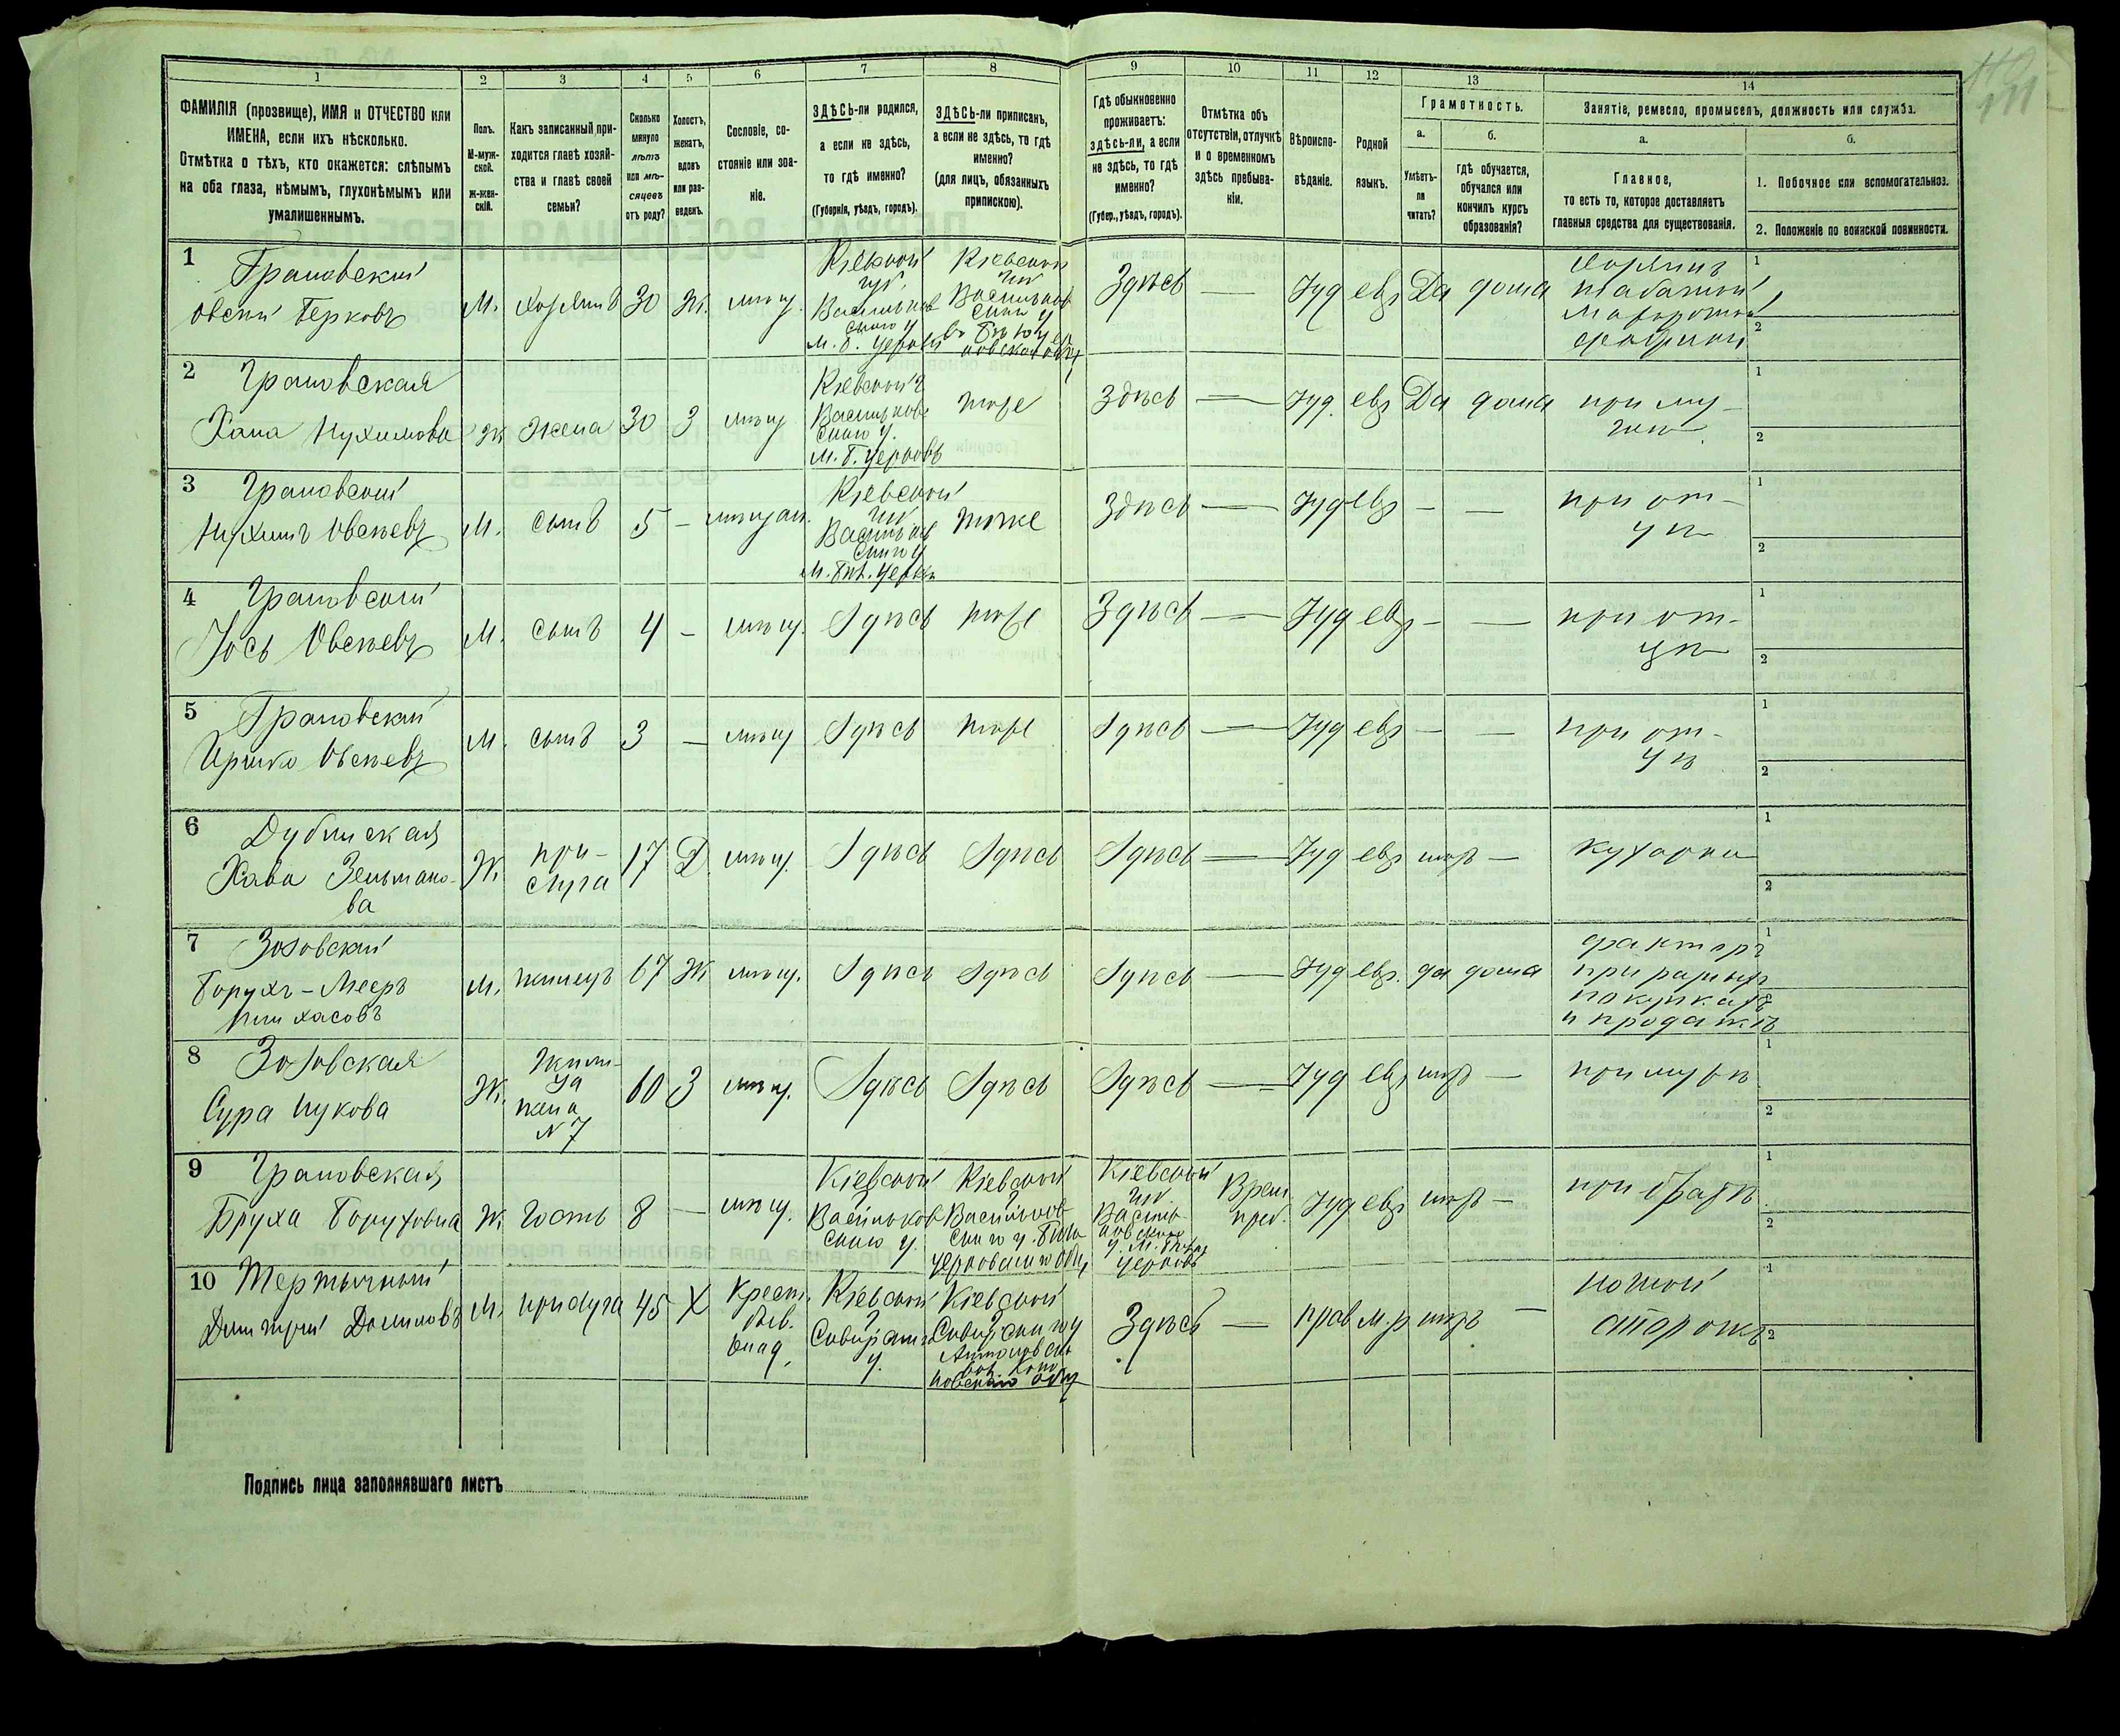 1 2 3 4 5 6 7 8 9 10 11 12 13 14
ФАМИЛІЯ (прозвище), ИМЯ и ОТЧЕСТВО или
ИМЕНА, если ихъ нѣсколько.
Отмѣтка о тѣхъ, кто окажется: слѣпымъ
на оба глаза, нѣмымъ, глухонѣмымъ или
умалишеннымъ.
Полъ.
М-муж-
ской.
ж-жен-
скій.
Какъ записанный при-
ходится главѣ хозяй-
ства и главѣ своей
семьи?
Сколько
минуло
лѣтъ
или мѣ-
сяцевъ
отъ роду?
Холостъ,
женатъ,
вдовъ
или раз-
веденъ.
Сословіе, со-
стояніе или зва-
ніе.
ЗДѢСЬ-ли родился,
а если не здѣсь,
то гдѣ именно?
(Губернія, уѣздъ, городъ).
ЗДѢСЬ-ли приписанъ,
а если не здѣсь, то гдѣ
именно?
(для лицъ, обязанныхъ
припискою).
Гдѣ обыкновенно
проживаетъ:
здѣсь-ли, а если
не здѣсь, то гдѣ
именно?
(Губер., уѣздъ, городъ).
Отмѣтка объ
отсутствіи, отлучкѣ
и о временномъ
здѣсь пребыва-
ніи.
Вѣроиспо-
вѣданіе.
Родной
языкъ.
Грамотность.
а.
Умѣетъ-
ли
читать?
б.
гдѣ обучается,
обучался или
кончилъ курсъ
образованія?
Занятіе, ремесло, промыселъ, должность или служба.
а.
Главное,
то есть то, которое доставляетъ
главныя средства для существованія.
б.
1. Побочное или вспомогательное.
2. Положеніе по воинской повинности.
1 Грановскій
Овсій Берковъ
М. хозяинъ 30 Ж. мѣщ.
Кіевской
губ.
Васильков
скаго у
М. Б. Церкви
Кіевской
Васильков
скаго у
Здѣсь — Іуд евр Да дома
хозяинъ
табачной
махорочной
фабрики
2 Грановская
Хана Нухимова
Ж жена 30 З мѣщ
Кіевской г
Васильков
скаго у.
М. Б. Церковь
тоже Здѣсь — Іуд. евр Да дома
при му-
жѣ
3 Грановскій
Нухимъ Овсѣевъ
М. сынъ 5 — мѣщан.
Кіевской
губ
Васильков
скаго у
М. Бѣл. Церкви
тоже Здѣсь — Іуд евр — —
при от-
цѣ
4 Грановскій
Іось Овсѣевъ
М. сынъ 4 — мѣщ. Здѣсь тоже Здѣсь — Іуд евр — —
при от-
цѣ
5 Грановскій
Ицико Овсѣевъ
М. сынъ 3 — мѣщ Здѣсь тоже Здѣсь — Іуд евр — —
при от-
цѣ
6 Дубинская
Хава Зельмано-
ва
Ж.
при-
слуга
17 Д мѣщ. Здѣсь Здѣсь Здѣсь — Іуд евр нѣтъ — кухарка
7 Зозовскій
Борухъ-Мееръ
Пинхасовъ
М. жилецъ 67 Ж мѣщ. Здѣсь Здѣсь Здѣсь — Іуд евр. да дома
факторъ
при разныхъ
покупкахъ
и продажѣ
8 Зозовская
Сура Ицкова
Ж.
жили-
ца
жена
№ 7
60 З мѣщ. Здѣсь Здѣсь Здѣсь — Іуд евр нѣтъ — при мужѣ
9 Грановская
Бруха Боруховна
Ж. Гость 8 — мѣщ.
Кіевской
г
Васильков
скаго у.
Кіевской
г
Васильков
скаго у. Бѣло
церковскаго общ
Кіевской
губ.
Василь
ковскаго
у. М. Бѣлая
Церковь
Врем
преб.
Іуд евр нѣтъ — при братѣ
10 Тертычный
Дмитрій Даниловъ
М. прислуга 45 Х
Крест.
быв.
влад.
Кіевской
г
Сквирскаго
у.
Кіевской
г
Сквирскаго у
Антоновской
вол.
общ
Здѣсь — прав м.р нѣтъ —
ночной
сторожъ
Подпись лица заполнявшаго листъ